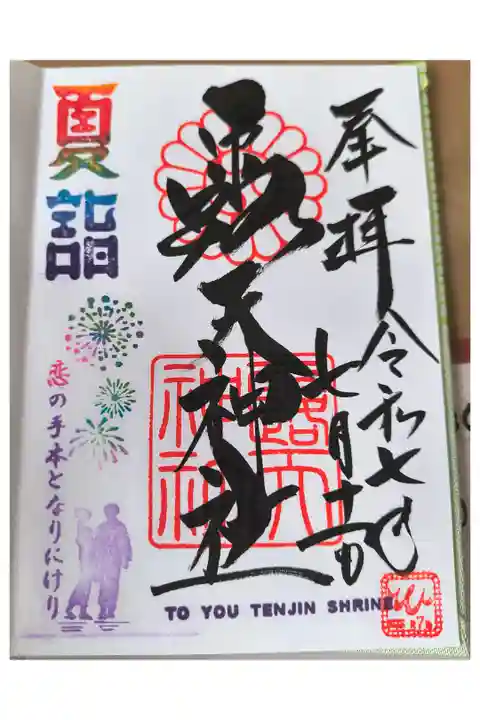 奉拝
令和七年
七月
露天神社
露天
神社
夏詣
恋の手本となりにけり
TO YOU TENJIN SHRINE